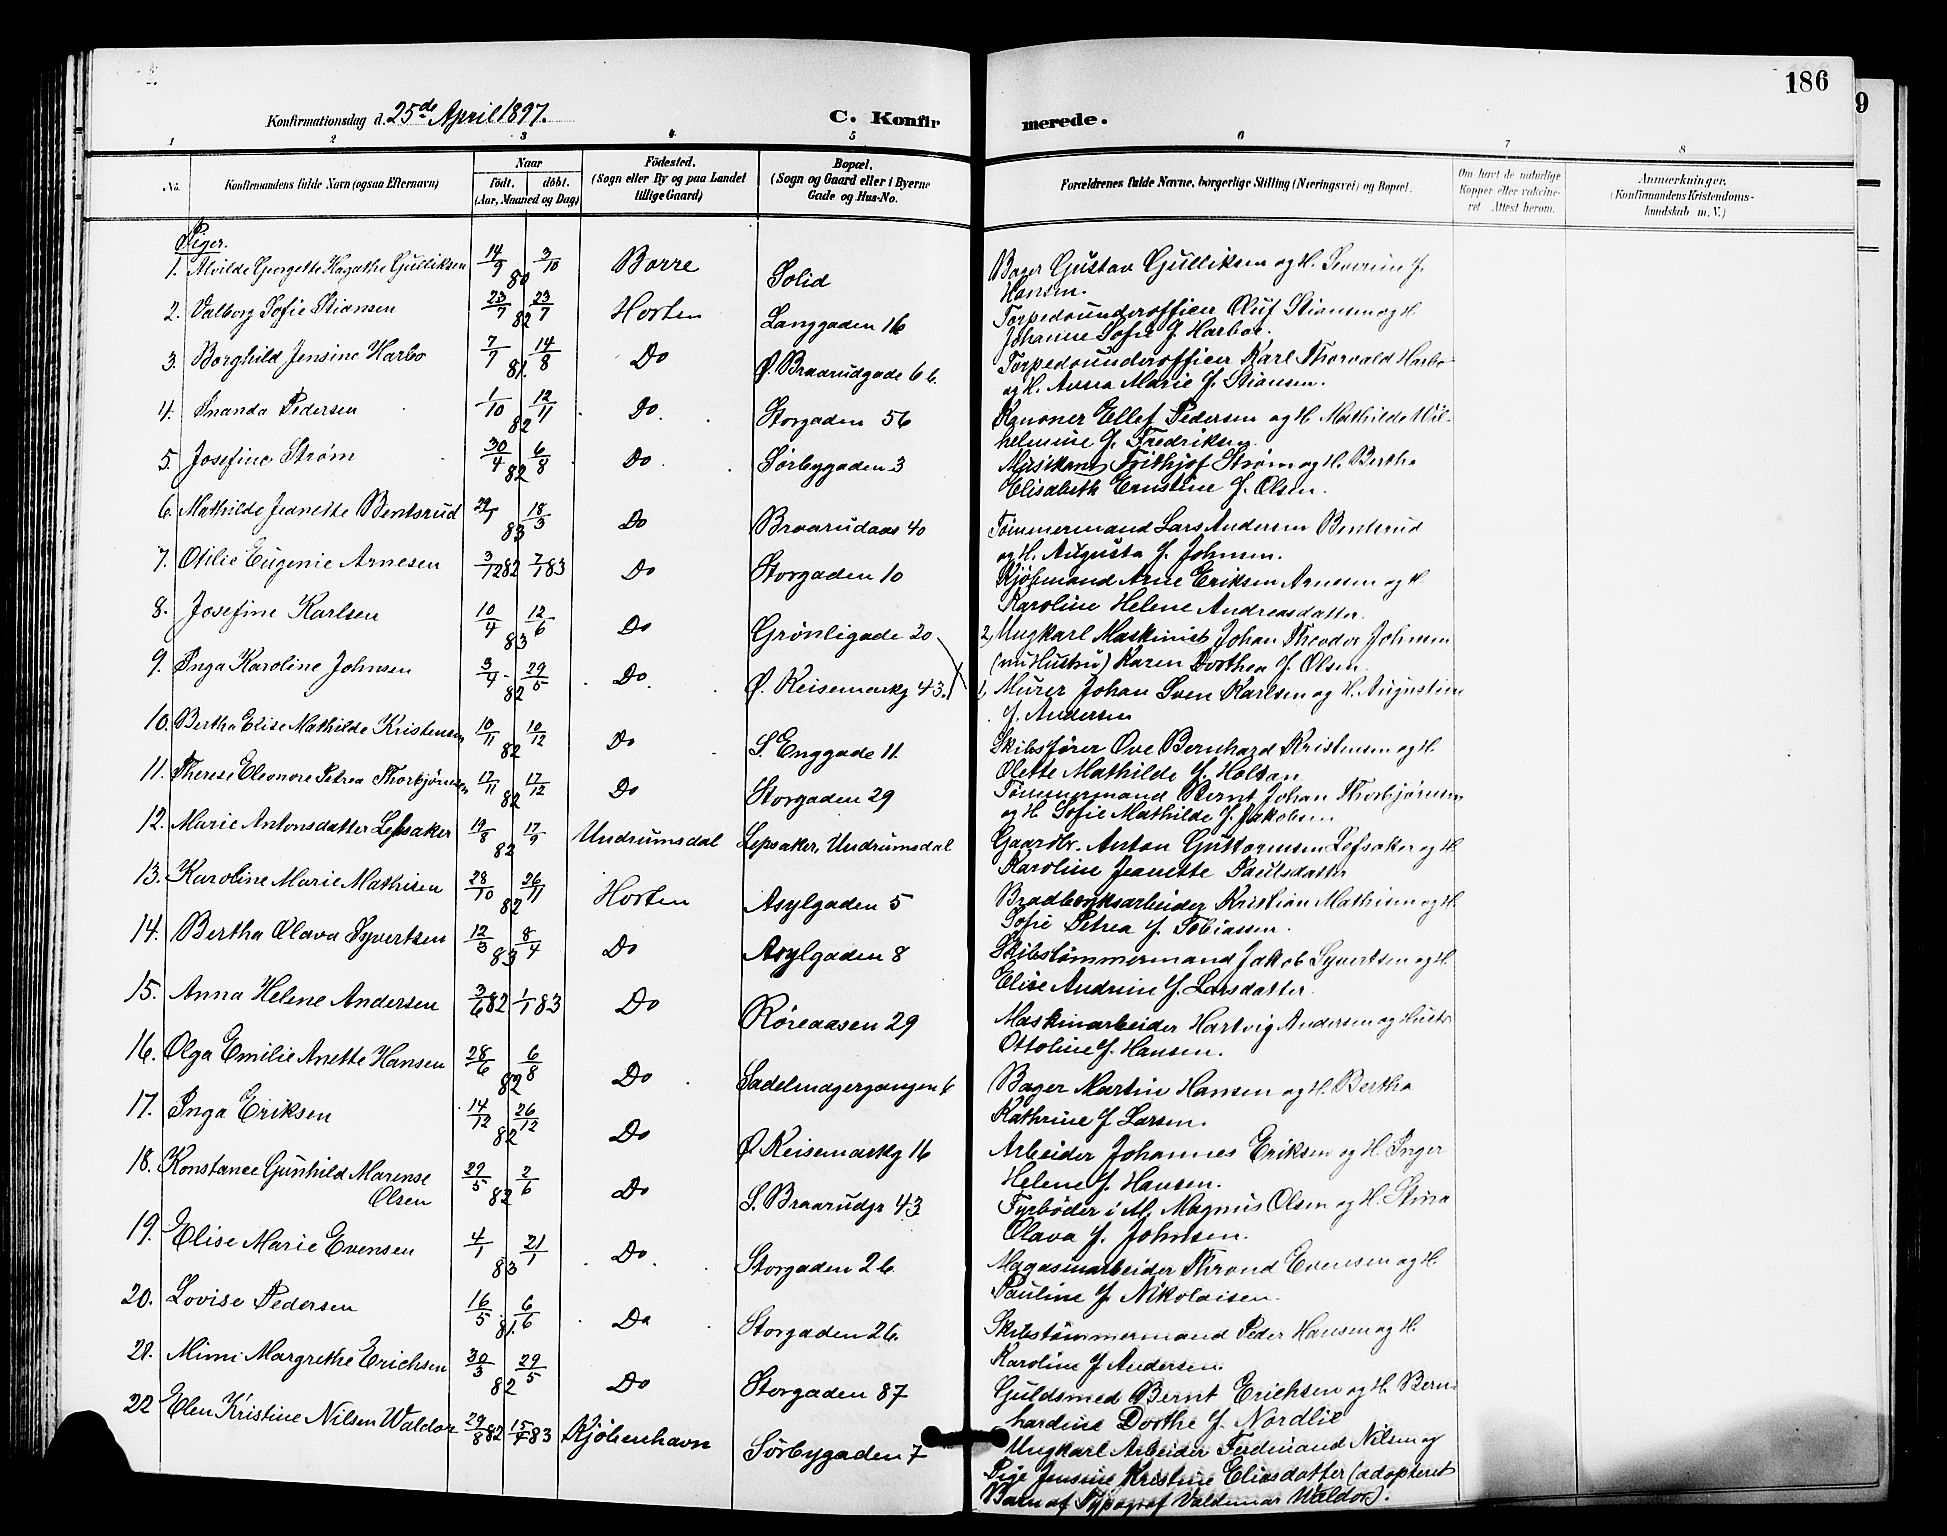 186
9
Konfirmationsdag d. 25de April 1897.
C. Konfirmerede.
1 2 3 4 5 6 7 8
No.
Konfirmandens fulde Navn (ogsaa Efternavn)
Naar
født. døbt.
(Aar, Maaned og Dag)
Fødested.
(Sogn eller By og paa Landet
tillige Gaard)
Bopæl.
(Sogn og Gaard eller i Byerne
Gade og Hus-No.
Forældrenes fulde Navne, borgerlige Stilling (Næringsvei) og Bopæl.
Om havt de naturlige
Kopper eller vaksine-
ret. Attest herom.
Anmærkninger.
(Konfirmandens Kristendoms-
kundskab m. V.)
Piger.
1. Alvilde Georgette Hagathe Gulliksen 14/9 3/10 80 Borre Solid Bager Gustav Gulliksen og H. Severine f.
Hansen.
2. Valborg Sofie Stiansen 23/7 23/7 82 Horten Langgaden 16 Torpedounderofficer Oluf Stiansen og H.
Johanne Sofie f. Harboe.
3. Borghild Jensine Harbo 7/7 14/8 81. Do Ø. Braarudgade 66. Torpedounderofficer Karl Thorvald Harbo
og H. Anna Marie f. Stiansen.
4. Inanda Pedersen 1/10 12/11 82 Do. Storgaden 56 Kanoner Ellef Pedersen og H. Mathilde Wil-
helmine f. Fredriksen.
5. Josefine Strøm 30/4 6/8 82 Do. Sørbygaden 3 Musikant Frithjof Strøm og H. Bertha
Elisabeth Ernstine f. Olsen.
6. Mathilde Jeanette Bentsrud 29/1 18/3 83 Do Braarudaas 40 Tømmermand Lars Andersen Bentsrud
og H. Augusta f. Johnsen.
7. Otilie Eugenie Arnesen 3/12 82 7/1 83 Do Storgaden 10 Kjøbmand Arne Eriksen Arnesen og H.
Karoline Helene Andreasdatter.
8. Josefine Karlsen 10/4 12/6 83 Do Grønligade 20 2, Ungkarl Maskinist Johan Theodor Johnsen
(nu Hustru) Karen Dorthea f. Olsen.
9. Inga Karoline Johnsen 3/4 29/5 82 Do. Ø. Keisemarkg 43. 1, Murer Johan Sven Karlsen og H. Augustine
f. Andersen
10. Bertha Elise Mathilde Kristensen 10/11 10/12 82 Do S. Enggade 11. Skibsfører Ove Bernhard Kristensen og H.
Olette Mathilde f. Holtan
11. Therese Eleonore Petrea Thorbjørnsen 17/11 17/12 82 Do Storgaden 29 Tømmermand Bernt Johan Thorbjørnsen
og H. Sofie Mathilde f. Jakobsen
12. Marie Antonsdatter Lefsaker 19/8 17/9 82 Undrumsdal Lepsaker, Undrumsdal Gaardbr. Anton Guttormsen Lefsaker og H.
Karoline Jeanette Paulsdatter
13. Karoline Marie Mathisen 28/10 26/11 82 Horten Asylgaden 5 Bradbænksarbeider Kristian Mathisen og H.
Sofie Petrea f. Tobiassen.
14. Bertha Olava Syvertsen 12/3 8/4 83 Do Asylgaden 8 Skibstømmermand Jakob Syvertsen og H.
Elise Andrine f. Larsdatter.
15. Anna Helene Andersen 3/6 82 1/1 83 Do Røreaasen 29 Maskinarbeider Hartvig Andersen og Hustr.
Ottoline f. Hansen.
16. Olga Emilie Anette Hansen 28/6 6/8 82 Do Sadelmagergangen 6 Bager Martin Hansen og H. Bertha
Kathrine f Larsen.
17. Inga Eriksen 14/12 26/12 82 Do Ø. Keisemarkg 16 Arbeider Johannes Eriksen og H. Inger
Helene f. Hansen.
18. Konstance Gunhild Marense
Olsen 27/5 2/6 82 Do S. Braarudgr 43 Fyrbøder i M. Magnus Olsen og H. Stina
Olava f. Johnsen.
19. Elise Marie Evensen 4/1 21/1 83 Do. Storgaden 26 Magasinarbeider Thrond Evensen og H.
Pauline f. Nikolaisen.
20. Lovise Pedersen 16/5 6/6 81. Do Storgaden 26. Skibstømmermand Peder Hansen og H.
Karoline f Andersen.
21. Mimi Margrethe Erichsen 30/3 29/5 82 Do Storgaden 87 Guldsmed Bernt Erichsen og H. Bern-
hardine Dorthe f. Nordlie
22 Elen Kristine Nilsen Waldor 29/8 82 15/4 83 Kjøbenhavn Sørbygaden 7 Ungkarl Arbeider Ferdinand Nilsen og
Pige Jensine Kristine Eliasdatter (adopteret
Barn af Typograf Valdemar Waldor).